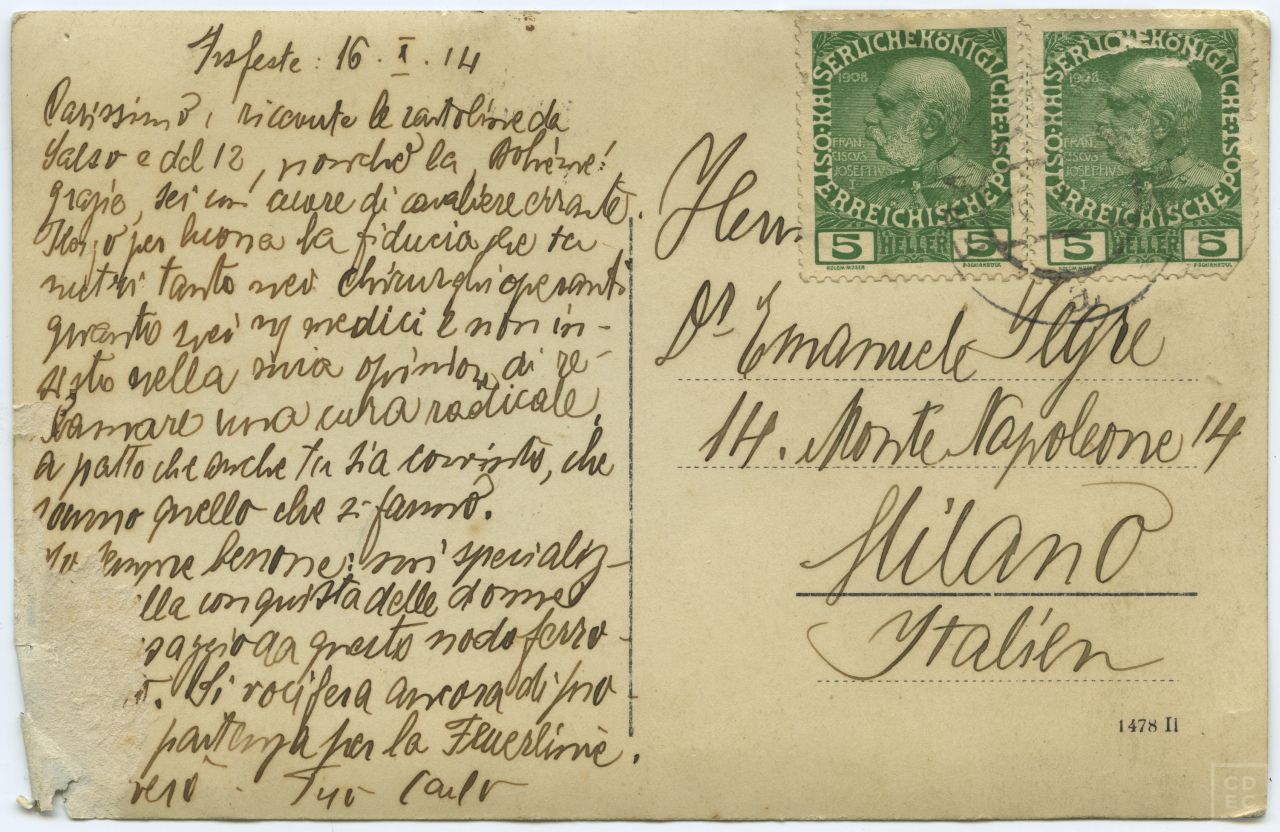 16. I. 14
Carissimo, ricevute le cartoline da
Salso e del 12, nonchè la, Bohème!
grazie, sei un cuore di cavaliere errante.
per buona la fiducia che tu
nutri tanto nei chirurghi operanti
quanto nei medici e non in-
sisto nella mia opinione di re-
clamare una cura radicale,
a patto che anche tu sia convinto, che
sanno quello che si fanno.
sempre benone: mi specializ-
lla conquista delle donne
saggio da questo nodo ferro-
. Si vocifera ancora di pro
partenza per la Feuerlinie.
Tuo Carlo
KAISERLICHE KÖNIGLICHE ÖSTERREICHISCHE POST
1908
FRAN
CISCVS
JOSEPHVS
I
5 HELLER 5
KOLOM. MOSER
F. SCHIRNBÖCK
KAISERLICHE KÖNIGLICHE ÖSTERREICHISCHE POST
1908
FRAN
CISCVS
JOSEPHVS
I
5 HELLER 5
KOLOM. MOSER
F. SCHIRNBÖCK
Herrn
Dr Emanuele Segre
14. Monte Napoleone 14
Milano
Italien
1478 II
CD
EC